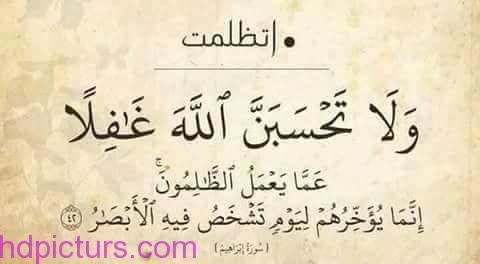 • إتظلمت
وَلَا تَحْسَبَنَّ ٱللَّهَ غَٰفِلًا
عَمَّا يَعْمَلُ ٱلظَّٰلِمُونَ ۚ
إِنَّمَا يُؤَخِّرُهُمْ لِيَوْمٍ تَشْخَصُ فِيهِ ٱلْأَبْصَٰرُ ٤٢
( سُورَةُ إِبْرَاهِيمَ )
hdpicturs.com